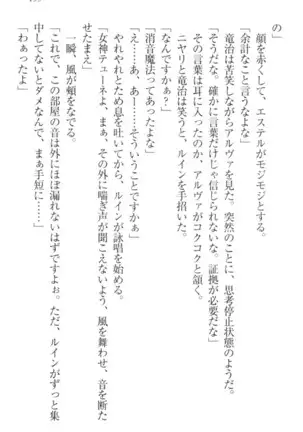 の」
顔を赤くして、エステルがモジモジとする。
「余計なこと言うなよな」
竜治は苦笑しながらアルヴァを見た。突然のことに、思考停止状態のようだ。
「そうだな。確かに言葉だけじゃ信じられないな。証拠が必要だな」
その言葉は耳に入ったのか、アルヴァがコクコクと頷く。
ニヤリと竜治は笑うと、ルインを手招く。
「消音魔法ってあったよな」
「なんですかぁ?」
「え……あ、あー……そういうことですかぁ」
やれやれとため息を吐いてから、ルインが詠唱を始める。
「女神テューネよ、その外に喘ぎ声が聞こえないよう、風を舞わせ、音を断たせたまえ」
一瞬、風が頬をなでる。
「これで、この部屋の音は外にほぼ漏れないはずですよぉ。ただ、ルインがずっと集中してないとダメなんで、まぁ手短に……」
「わぁったよ」